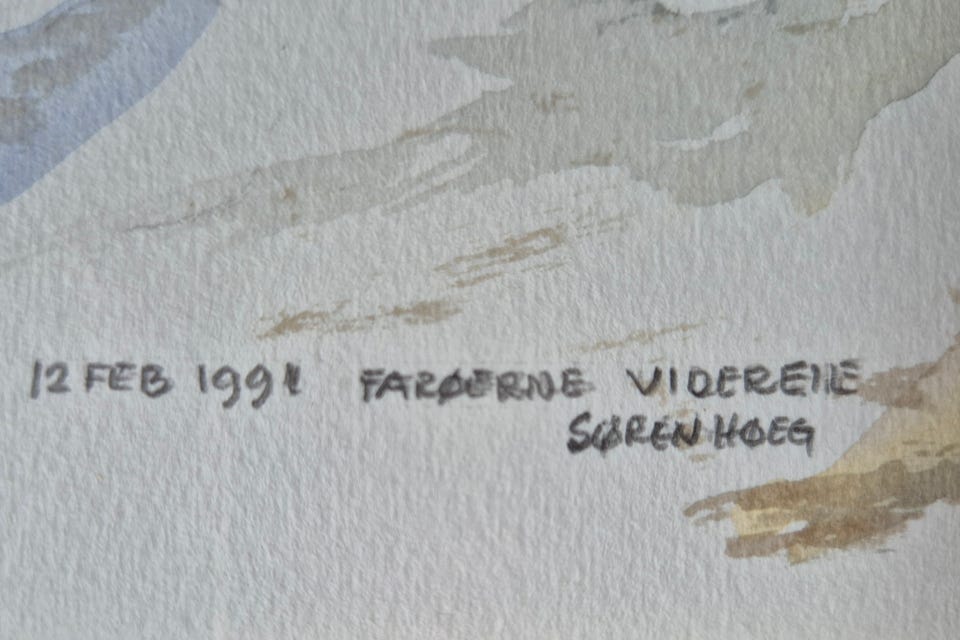 12 FEB 1991 FARØERNE VIDEREIIE
SØREN HØEG